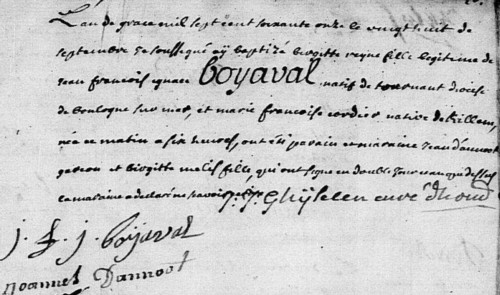 L'an de grace mil sept cent soixante onze le vingt huit de
septembre je soussigné ay baptizé birgitte reyne fille legitime de
jean francois ignace boyaval natif de tournant diocese
de boulogne sur mer, et marie francoise cordier native de killem,
née ce matin a six heures, ont été parain et maraine jean dannoot
garcon et birgitte malis fille, qui ont signe en double jour
la maraine a declaré ne savoir
Ghyselen curé
j. f. j. boyaval
joannes Dannoot